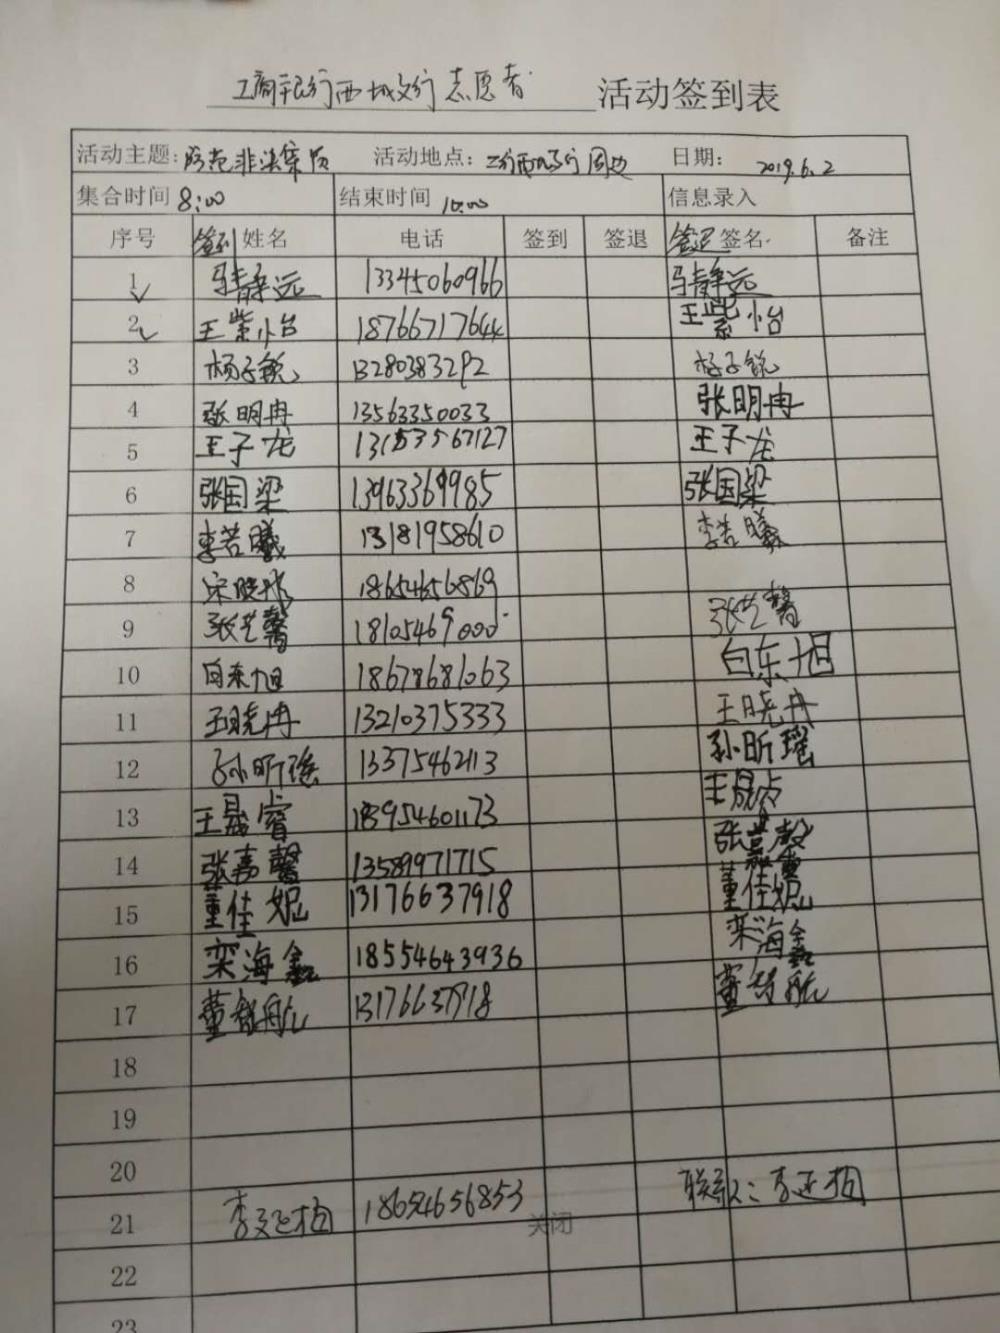 工商银行西城支行志愿者 活动签到表
活动主题:防范非法集资 活动地点:工行西城支行周边 日期: 2019.6.2
集合时间 8:00 结束时间 10:00 信息录入
序号 签到姓名 电话 签到 签退 签退签名 备注
1 马静远 13345060966 马静远
2 王紫怡 18766717644 王紫怡
3 杨子锐 13280383292 杨子锐
4 张明冉 13563350033 张明冉
5 王子龙 13153567127 王子龙
6 张国梁 13963369985 张国梁
7 李若曦 13181958610 李若曦
8 宋晓 18654656869
9 张艺馨 18105469000 张艺馨
10 白东旭 18678681063 白东旭
11 王晓冉 13210375333 王晓冉
12 孙昕瑶 13375462113 孙昕瑶
13 王晟睿 18954601173 王晟睿
14 张嘉馨 13589971715 张嘉馨
15 董佳妮 13176637918 董佳妮
16 栾海鑫 18554643936 栾海鑫
17 董智航 13176637918 董智航
18
19
20
21 李延柏 18654656853 联系人:李延柏
关闭
22
23